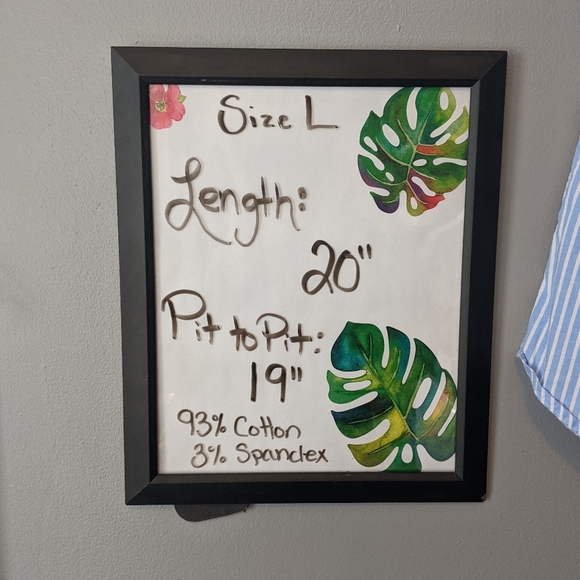 Size L
Length:
20"
Pit to Pit:
19"
93% Cotton
3% Spandex